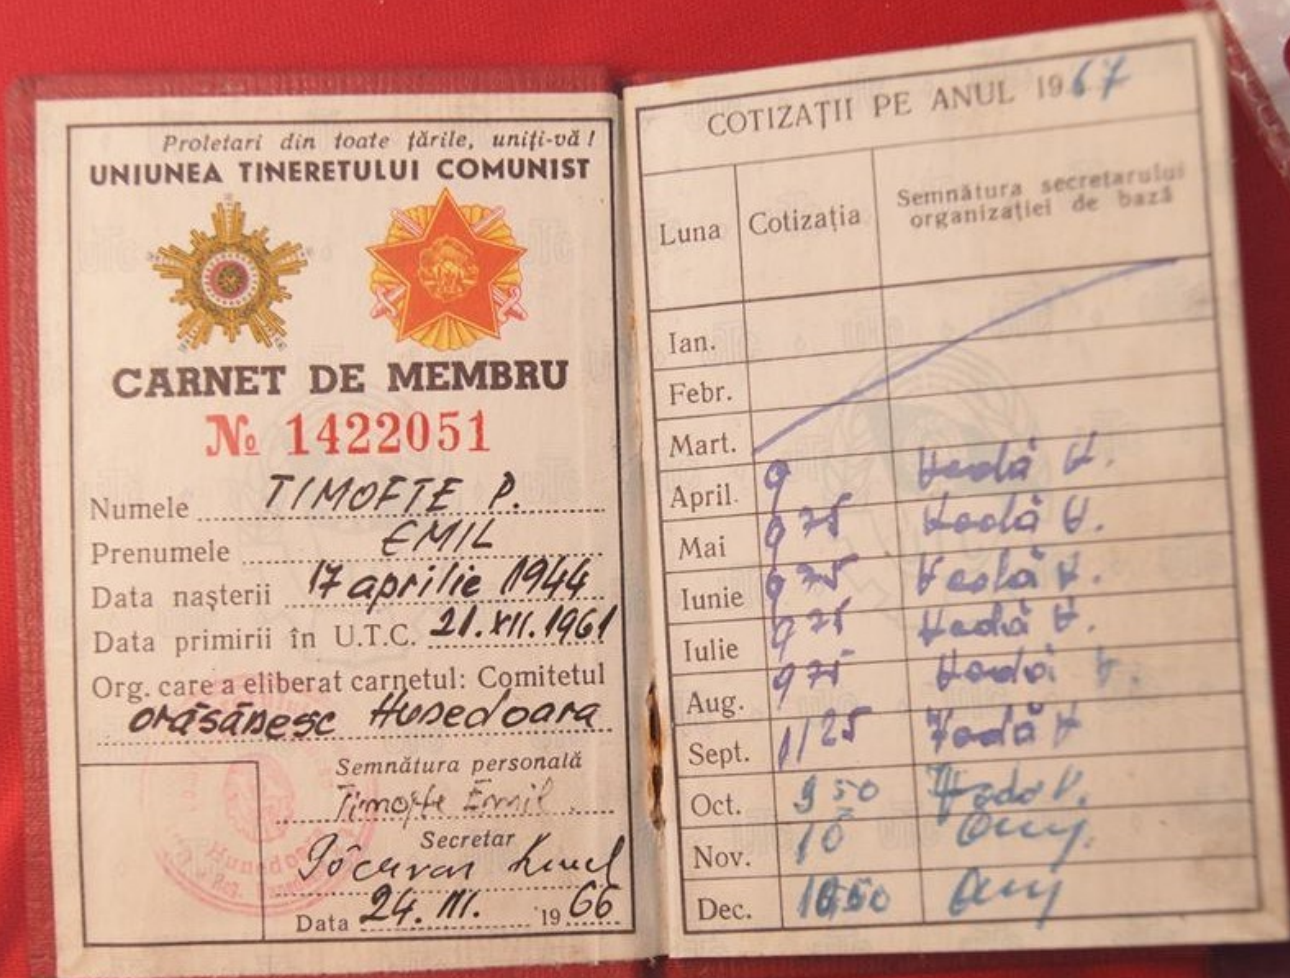 Proletari din toate țările, uniți-vă!
UNIUNEA TINERETULUI COMUNIST
CARNET DE MEMBRU
№ 1422051
Numele TIMOFTE P.
Prenumele EMIL
Data nașterii 17 aprilie 1944
Data primirii în U.T.C. 21.XII.1961
Org. care a eliberat carnetul: Comitetul
orășănesc Hunedoara
Semnătura personală
Timofte Emil
Secretar
Data 24. III. 1966
COTIZAȚII PE ANUL 1967
Luna Cotizația Semnătura secretarului organizației de bază
Ian.
Febr.
Mart.
April. 9
Mai 9 75
Iunie 9 75
Iulie 9 75
Aug. 9 75
Sept. 11 25
Oct. 9 50
Nov. 10
Dec. 10 50